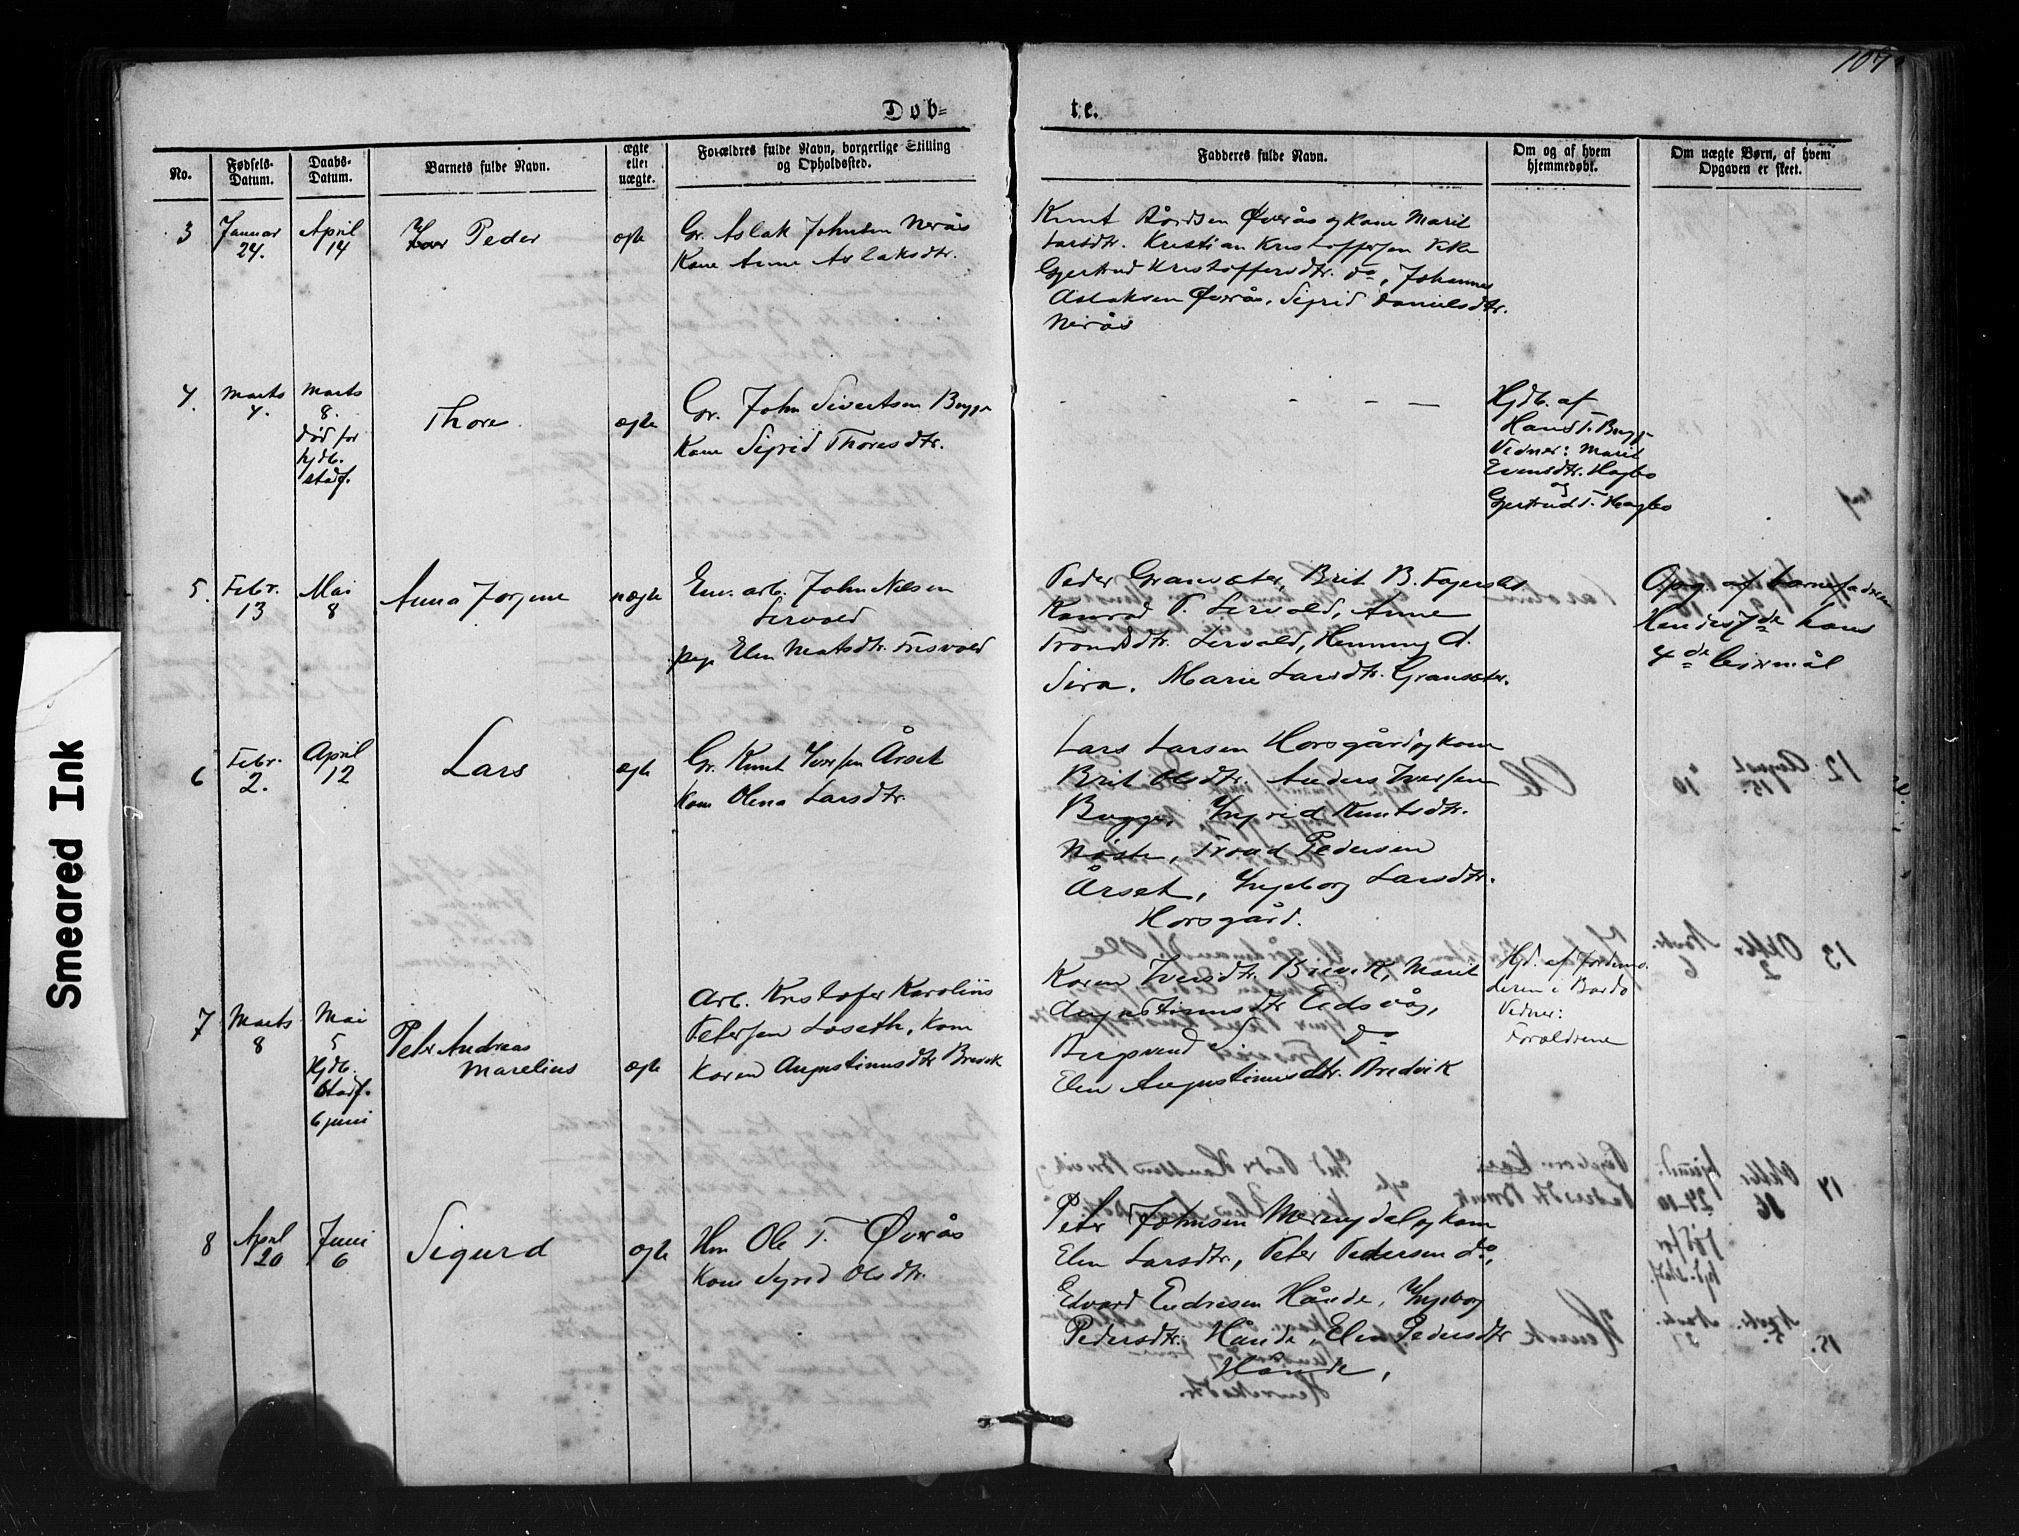 107
Døb=
te.
No.
Fødsels-
Datum.
Daabs-
Datum.
Barnets fulde Navn.
ægte
eller
uægte.
Forældres fulde Navn, borgerlige Stilling
og Opholdssted.
Fadderes fulde Navn.
Om og af hvem
hjemmedøbt.
Om uægte Børn, af hvem
Opgaven er skeet.
3
Januar
24.
April
14
Peder
ægte
Gr. Aslak Johnsen Nerås
Kone Anne Aslaksdtr.
Knut Bårdsen Øverås og kone Marit
Larsdtr. Kristian Kristoffersen
Gjertrud Kristoffersdtr. do, Johannes
Aslaksen Øverås, Sigrid Danielsdtr.
Nerås
4.
Marts
4.
Marts
8.
død før
hjdb.
stadf.
Thore.
ægte
Gr. John Sivertsen Bugge
Kone Sigrid Thoresdtr.
Hjdb. af
Hans T. Bugge
Vidner: Marit
Evensdtr. Hagbø
og
Gjertrud T. Hagbø
5.
Febr.
13
Mai
8
Anna Jørgine
uægte
Em. arb. John Nilsen
Lervold
pige Elen Matsdtr. Tresvold
Peder Gransæter, Brit B. Fagerslet
Konrad P. Lervold, Anne
Trondsdtr. Lervold, Henning A.
Sira. Marie Larsdtr. Gransæter.
Opg. af barnefaderen
Hendes 7de hans
4de leiermål
6
Febr.
2.
April
12
Lars
ægte
Gr. Knut Iversen Årset
Kone Olena Larsdtr.
Lars Larsen Horsgård og kone
Brit Olsdtr. Anders Iversen
Bugge, Ingrid Knutsdtr.
Nøste, Trond Pedersen
Årset, Ingeborg Larsdtr.
Horsgård.
7
Marts
8
Mai
5
Hjdb.
Stadf.
6 juni
Peter Andreas
Marelius
ægte
Arb. Kristofer Karoliis
Petersen Loseth, Kone
Karen Augustinusdtr Brevik
Karen Iversdtr. Brevik, Marit
Augustinusdtr Eidsvåg,
do
Elen Augustinusdtr. Bredvik
Hjd. af Jordemo-
deren
Vidner:
Forældrene
8
April
20
Juni
6
Sigurd
ægte
Hm Ole T. Øverås
Kone Sigrid Olsdtr.
Peter Johnsen Meringdal og kone
Elen Larsdtr, Peter Pedersen do,
Edvard Endresen Hånde, Ingeborg
Pedersdtr. Hånde, Elen Pedersdtr
Hånde,
Smeared Ink